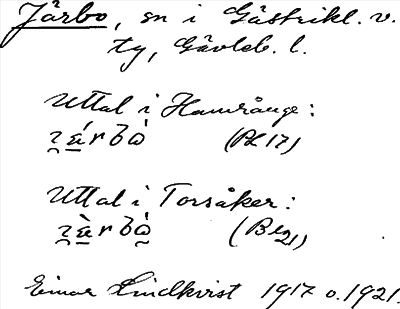 Järbo, sn i Gästrikl. v.
ty, Gävleb. l.
Uttal i Hamrånge:
(Bl 17)
Uttal i Torsåker:
(Bl 21)
Einar Lindkvist 1917 o. 1921.